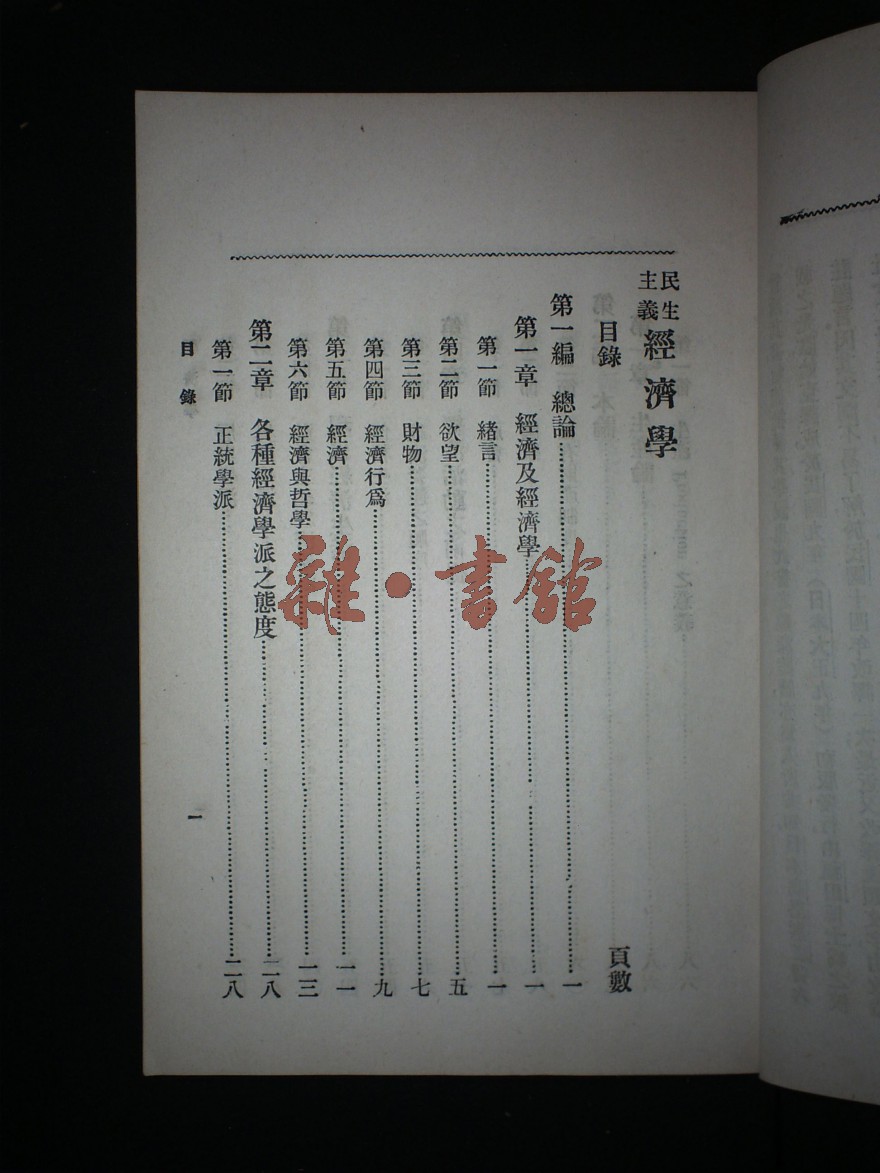 民生主義經濟學
目錄　頁數
第一編　總論…………一
第一章　經濟及經濟學…………一
第一節　緒言…………一
第二節　欲望…………五
第三節　財物…………七
第四節　經濟行爲…………九
第五節　經濟…………一一
第六節　經濟與哲學…………一三
第二章　各種經濟學派之態度…………二八
第一節　正統學派…………二八
目錄
一
雜·書館